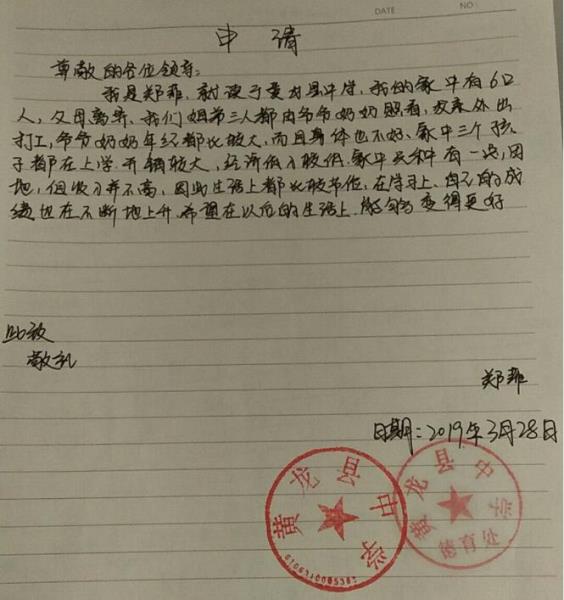 DATE
NO
申 请
尊敬的各位领导:
我是郑菲，就读于黄龙县中学，我的家中有6口
人，父母离异，我们姐弟三人都由爷爷奶奶照看，父亲外出
打工，爷爷奶奶年纪都比较大，而且身体也不好、家中三个孩
子都在上学，开销较大，经济收入较低，家中只种有一点田
地，但收入并不高，因此生活上都比较节俭，在学习上，自己的成
绩也在不断地上升，希望在以后的生活上，能够变得更好
此致
敬礼
郑菲
日期：2019年3月28日
黄龙县中学
黄龙县中学
德育处